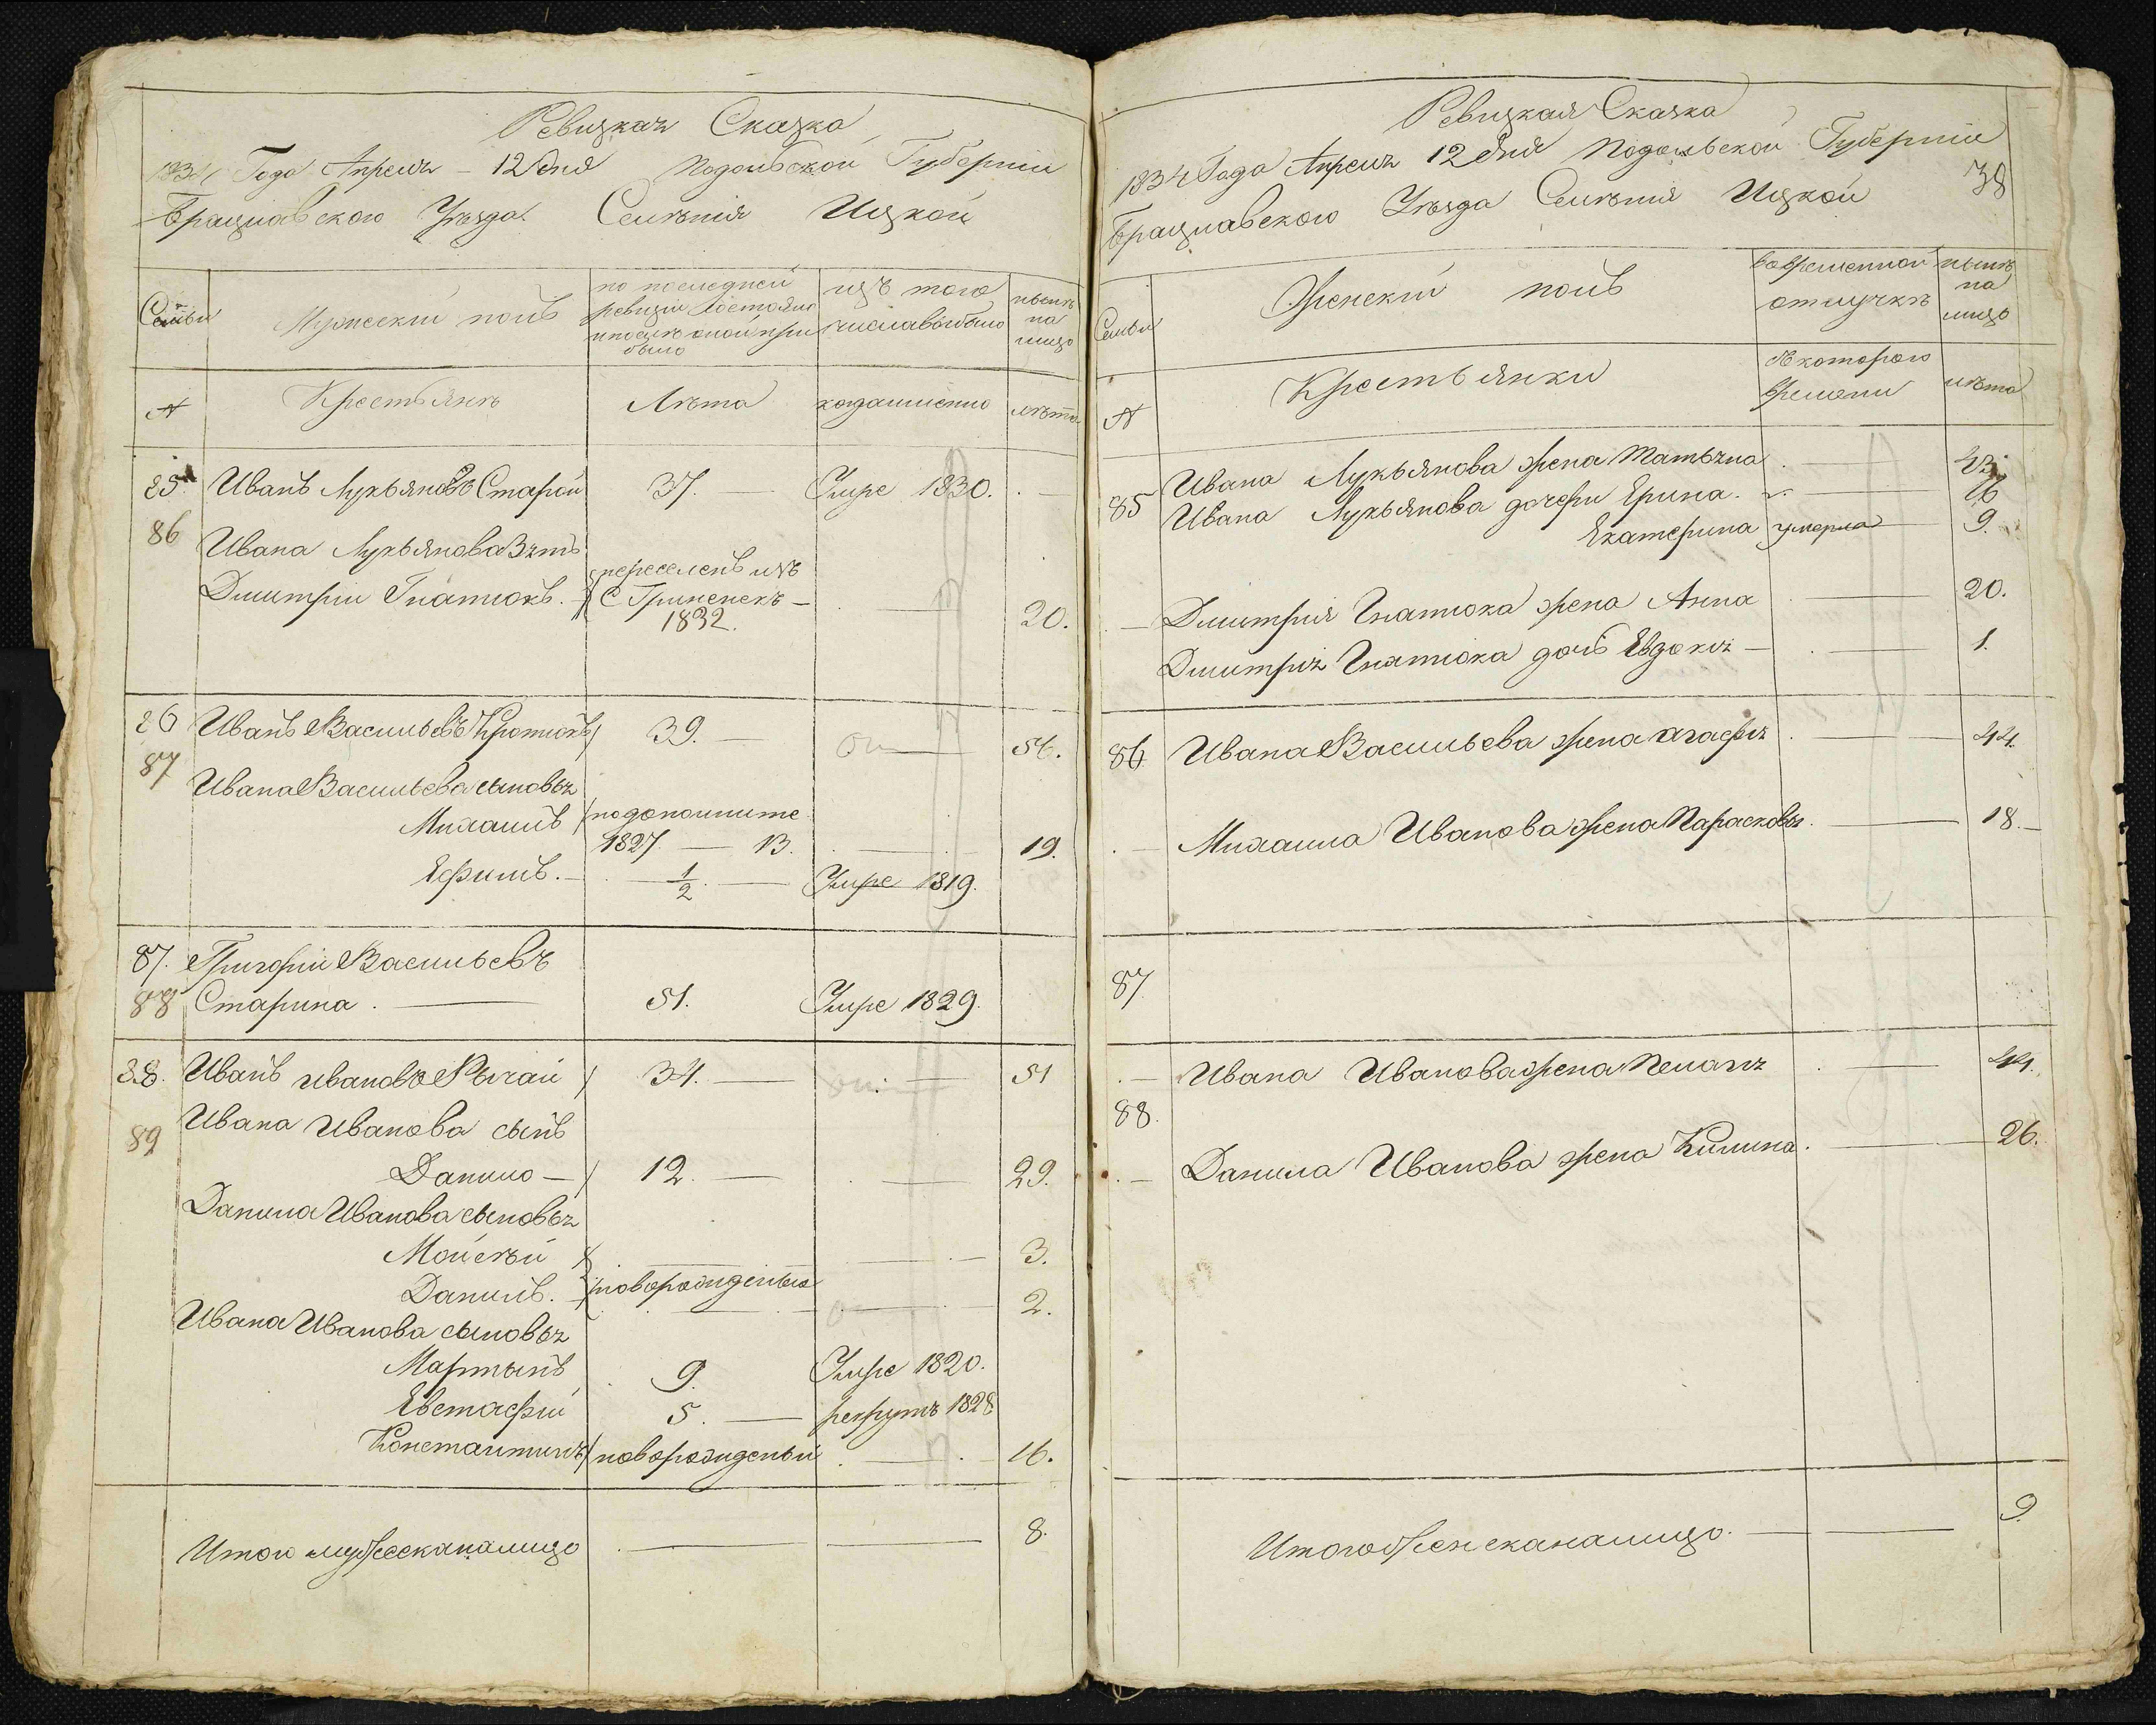 Ревизкая Сказка
1834 Года Апреля 12 дня Подольской Губернии
Брацлавского Уезда Селения Ицкой
Семьи
Мужескии полъ
по последней
ревизии состояло
и после оной при
было
изъ того
числа выбыло
ныне
на
лицо
№
Крестьяне
Лета
когда именно
лета
85. Иванъ Лукьяновъ Старой 37. Умре 1830.
86 Ивана Лукьянова Зять
Дмитрiи Гнатюкъ. переселенъ изъ
С. Гриненекъ 1832. 20.
26 Иванъ Васильевъ 39. 56.
87 Ивана Васильева сыновья
Михаилъ подополните
1827 13. 19.
Ефимъ. 1/2. Умре 1819.
87. Григорiи Васильевъ
88 Старина 51. Умре 1829.
88. Иванъ Ивановъ 34. 51
89 Ивана Иванова сынъ
Данило 12. 29.
Данила Иванова сыновья
Мойсей 3.
Данилъ. новорожденыя 2.
Ивана Иванова сыновья
Мартынъ 9. Умре 1820.
Евстафiй 5. рекрутъ 1828
Константинъ новорожденый 16.
Итого мужеска на лицо 8.
Ревизкая Сказка
1834 Года Апреля 12 дня Подольской Губернiи
Брацлавского Уезда Селения Ицкой
38
Семьи
Женскiй полъ
во временной
отлучке
ныне
на
лицо
№
Крестьянки
съ которого
времени
лета
85 Ивана Лукьянова жена Татьяна 43.
Ивана Лукьянова дочери Ерина. 16
Екатерина умерла 9.
Дмитрия Гнатюка жена Анна 20.
Дмитрия Гнатюка дочь Евдокия 1.
86 Ивана Васильева жена Агафия 44.
Михаила Иванова жена Парасковья 18.
87
Ивана Иванова жена Пелагия 44.
88.
Данила Иванова жена Килина 26.
Итого женска на лицо 9